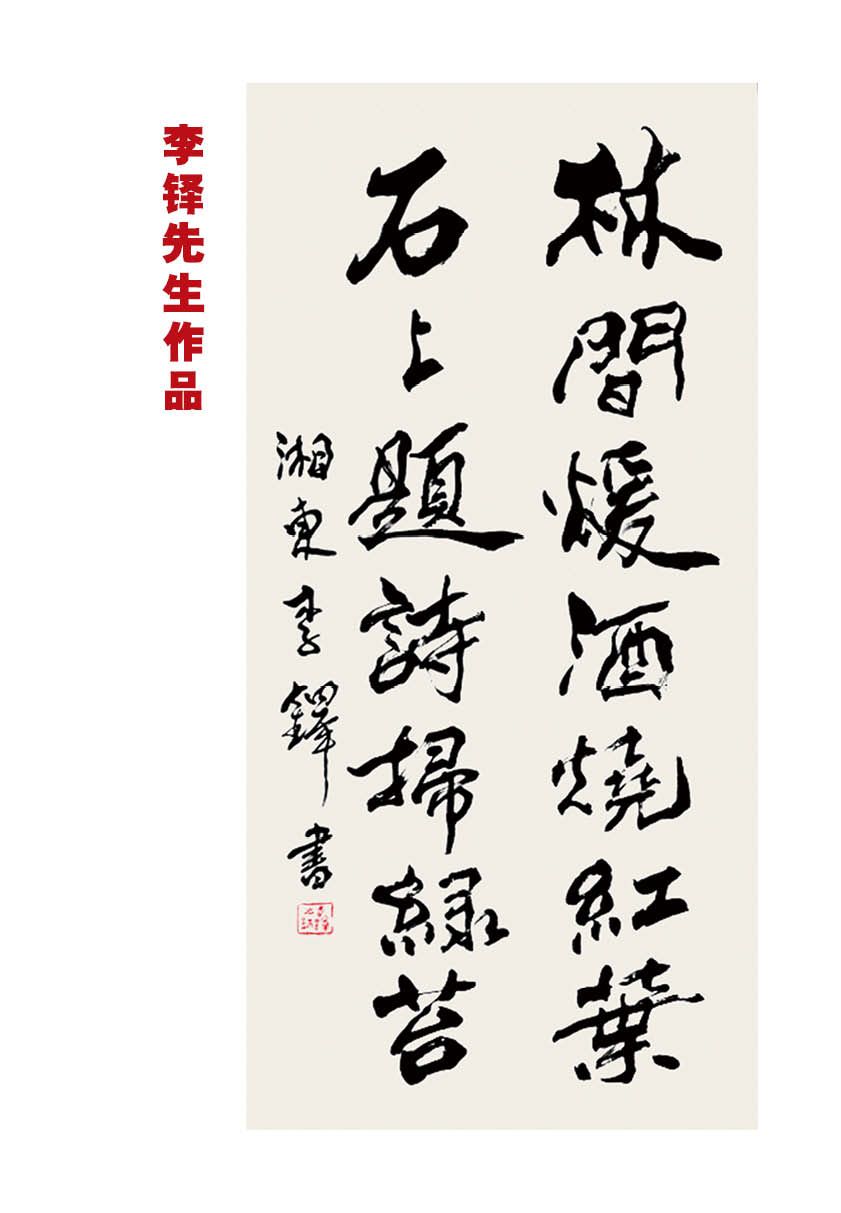 林間煖酒燒紅葉
石上題詩掃緑苔
湘東李鐸書
李铎先生作品